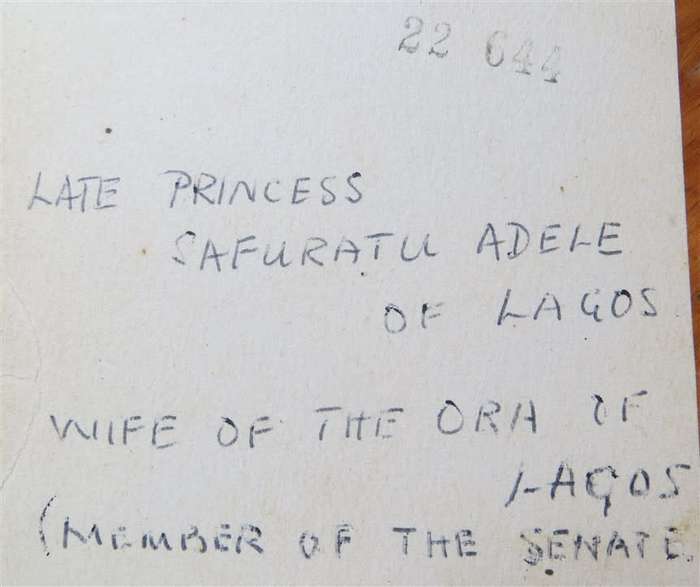 22 644
LATE PRINCESS
SAFURATU ADELE
OF LAGOS
WIFE OF THE ORA OF
LAGOS
(MEMBER OF THE SENATE